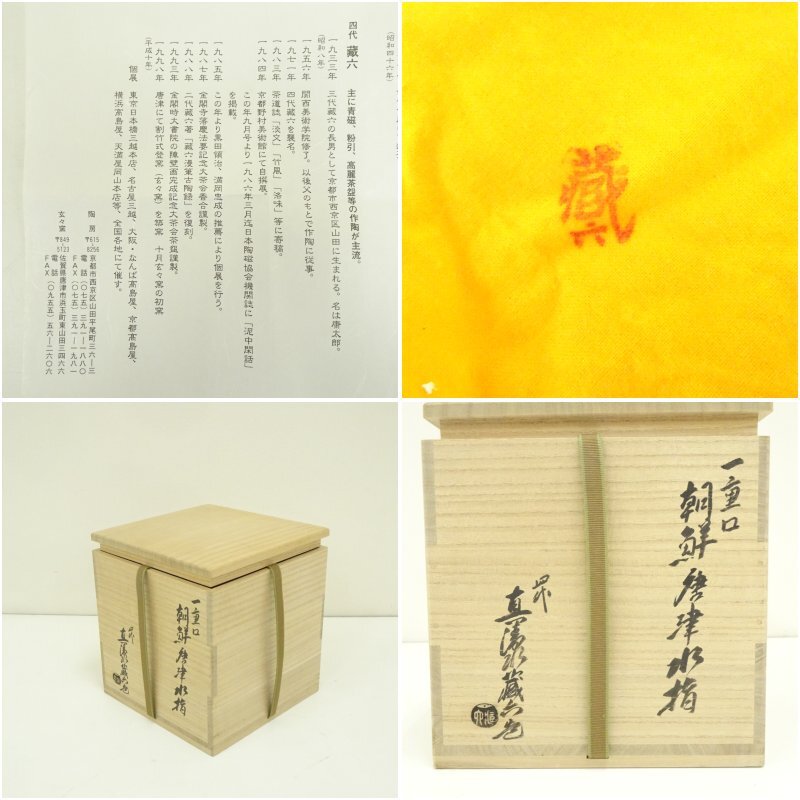 四代 藏六 主に青磁、粉引、高麗茶盌等の作陶が主流。
一九三三年 三代藏六の長男として京都市西京区山田に生まれる。名は唐太郎。
(昭和八年)
一九五六年 関西美術学院修了。以後父のもとで作陶に従事。
一九七一年 四代藏六を襲名。
(昭和四十六年)
一九八三年 茶道誌「淡交」「竹風」「洛味」等に寄稿。
一九八四年 京都野村美術館にて自撰展。
この年九月号より一九八六年三月迄日本陶磁協会機関誌に「泥中閑話」
を掲載。
一九八五年 この年より黒田領治、満岡忠成の推薦により個展を行う。
一九八七年 金閣寺落慶法要記念大茶会香合謹製。
一九八八年 二代藏六著「藏六漫筆古陶録」を復刻。
一九九三年 金閣時大書院の障壁画完成記念大茶会茶盌謹製。
一九九八年 唐津にて割竹式登窯(玄々窯)を築窯 十月玄々窯の初窯
(平成十年)
個展 東京日本橋三越本店、名古屋三越、大阪・なんば高島屋、京都高島屋、
横浜高島屋、天満屋岡山本店等、全国各地にて催す。
陶房 〒615-8256 京都市西京区山田平尾町三六ー三
電話(〇七五)三九一ー一八八〇
FAX(〇七五)三九一ー一九八一
玄々窯 〒849-5123 佐賀県唐津市浜玉町東山田三四六六
電話
FAX(〇九五五)五六ー二六〇六
藏
一重口
朝鮮唐津水指
四代
真清水藏六造
一重口
朝鮮唐津水指
四代
真清水藏六造